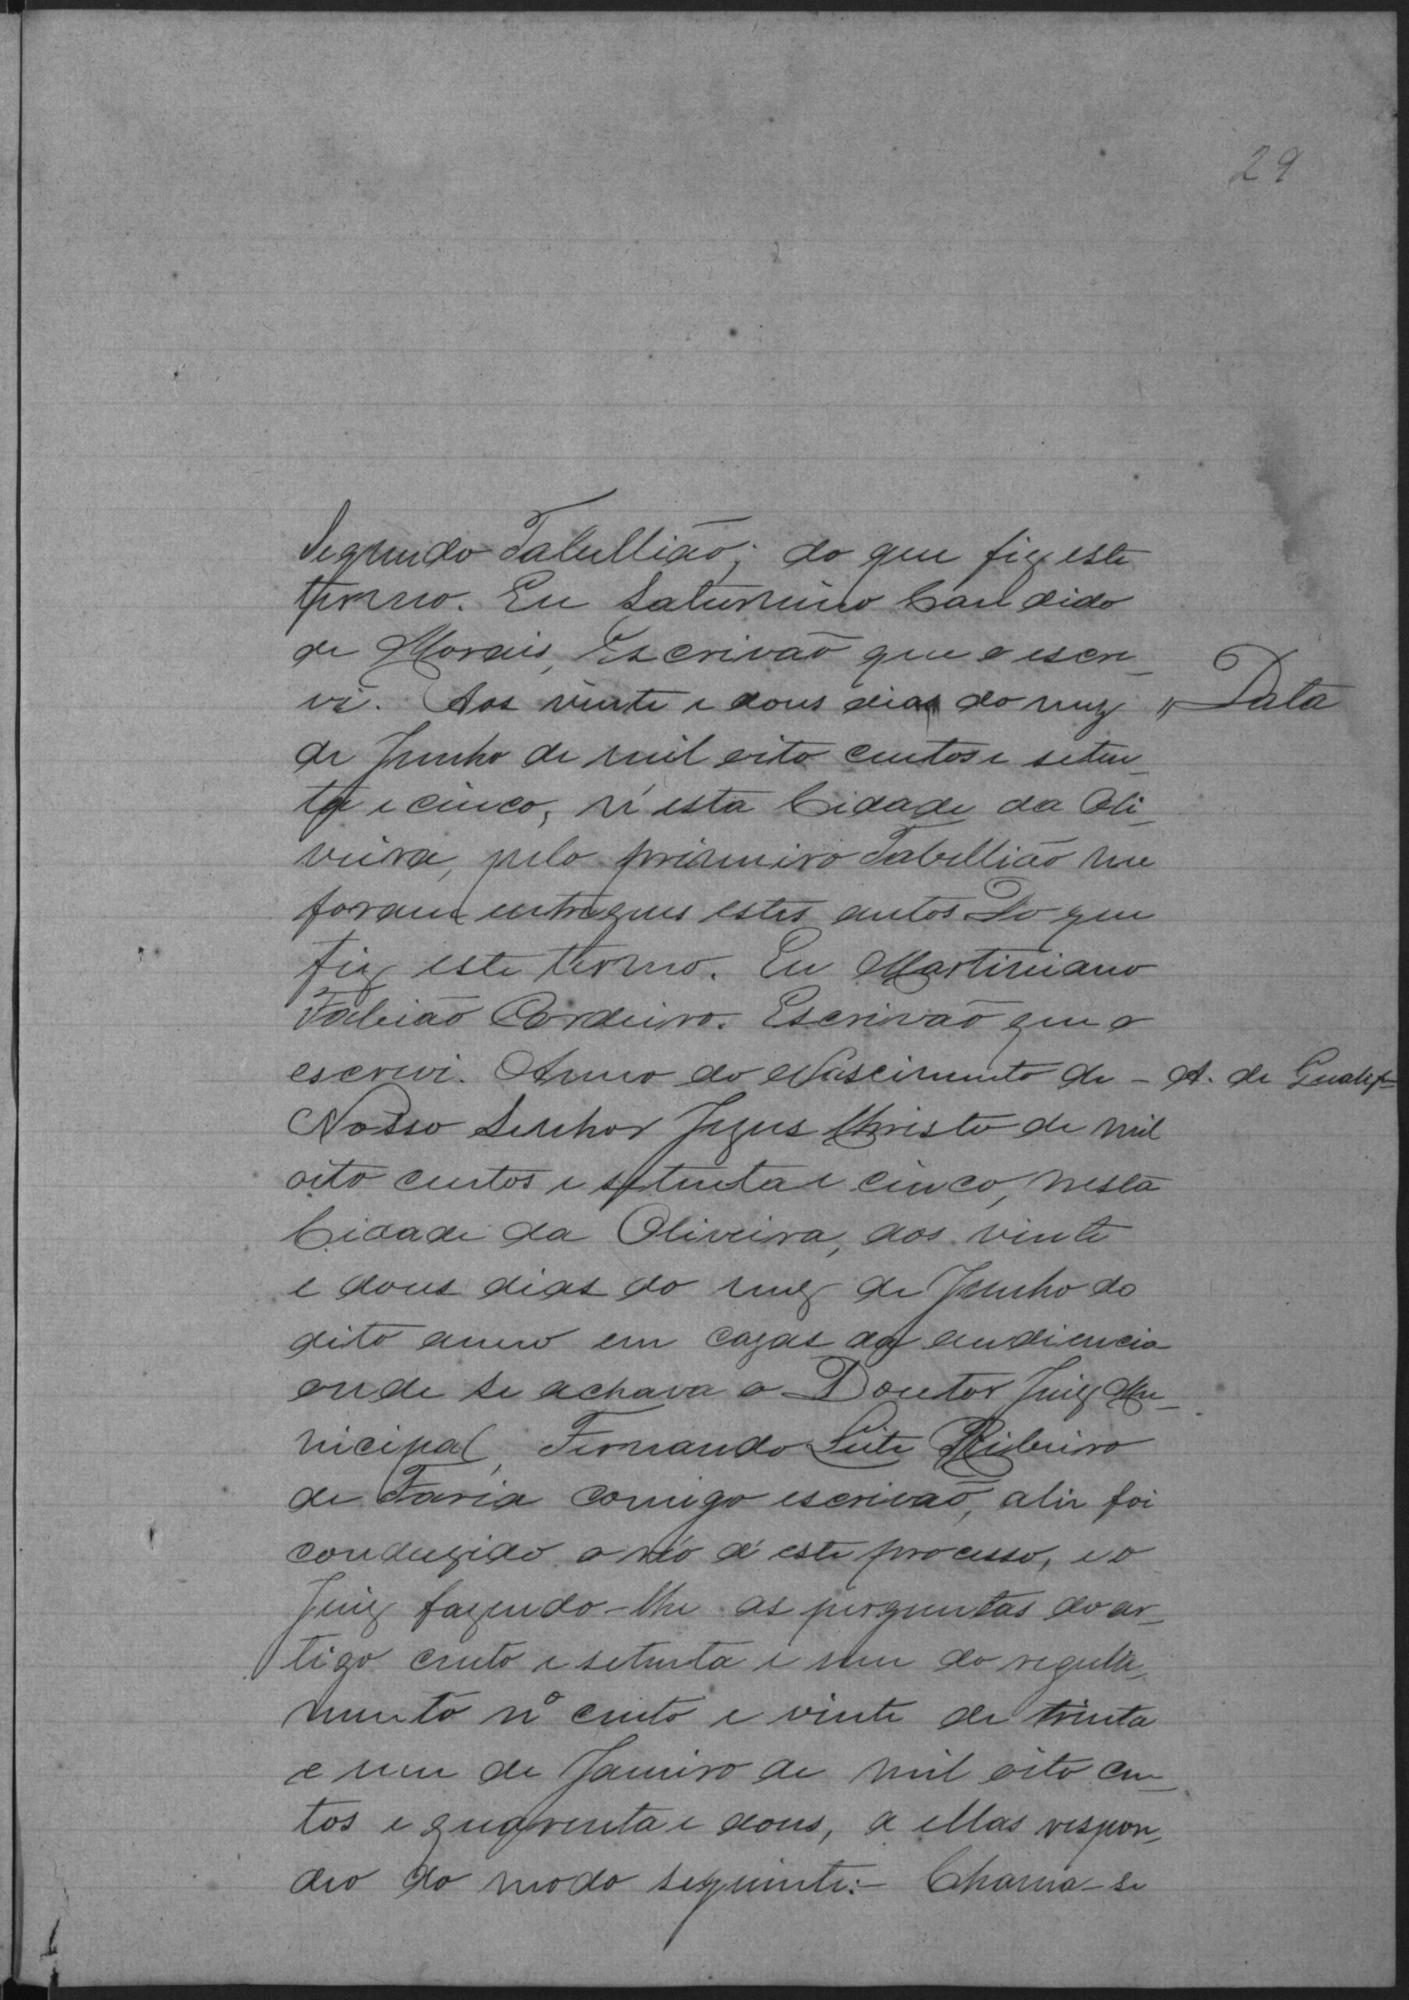 29
Segundo Tabellião; do que fiz este
termo. Eu Saturnino Candido
de Morais, Escrivão que o escre-
vi. Aos vinte e dous dias do mez
" Data
de Junho de mil oito centos e seten-
ta e cinco, n'esta Cidade da Oli-
veira, pelo primeiro Tabellião me
foram entregues estes autos Do que
fiz este termo. Eu Martiniano
Fabião Cordeiro. Escrivão que o
escrevi. Anno do Nascimento de
- A. de Qualif
Nosso Senhor Jezus Christo de mil
oito centos e setenta e cinco, nesta
Cidade da Oliveira, aos vinte
e dous dias do mez de Junho do
dito anno em cazas da audiencia
onde se achava o Doutor Juiz Mu-
nicipal, Fernando Leite Ribeiro
de Faria comigo escrivão, ahi foi
conduzido o réo d'este processo, e o
Juiz fazendo-lhe as perguntas do ar-
tigo cento e setenta e um do regula-
mento nº cento e vinte de trinta
e um de Janeiro de mil oito cen-
tos e quarenta e dous, a ellas respon-
deo do modo seguinte:- Chama-se